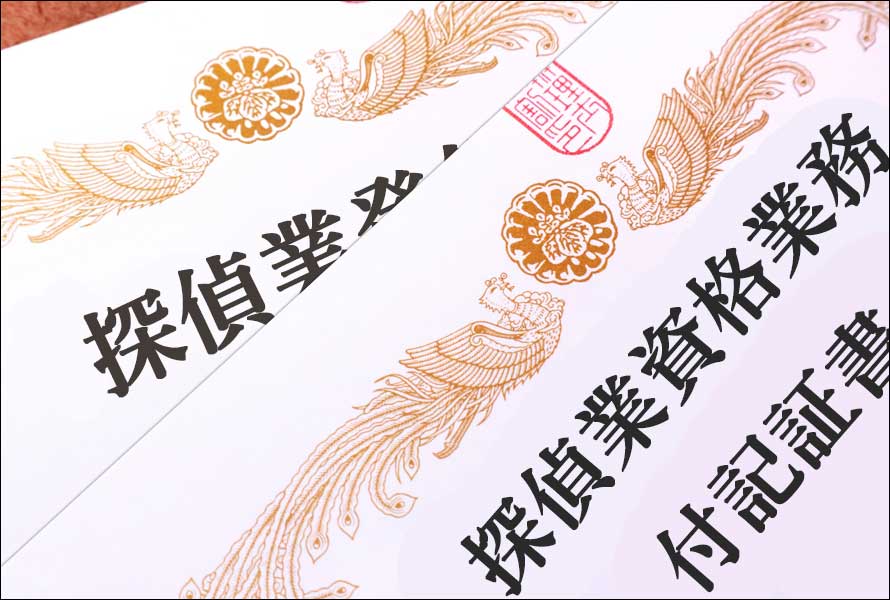 探偵業登
探偵業資格業務
付記証書